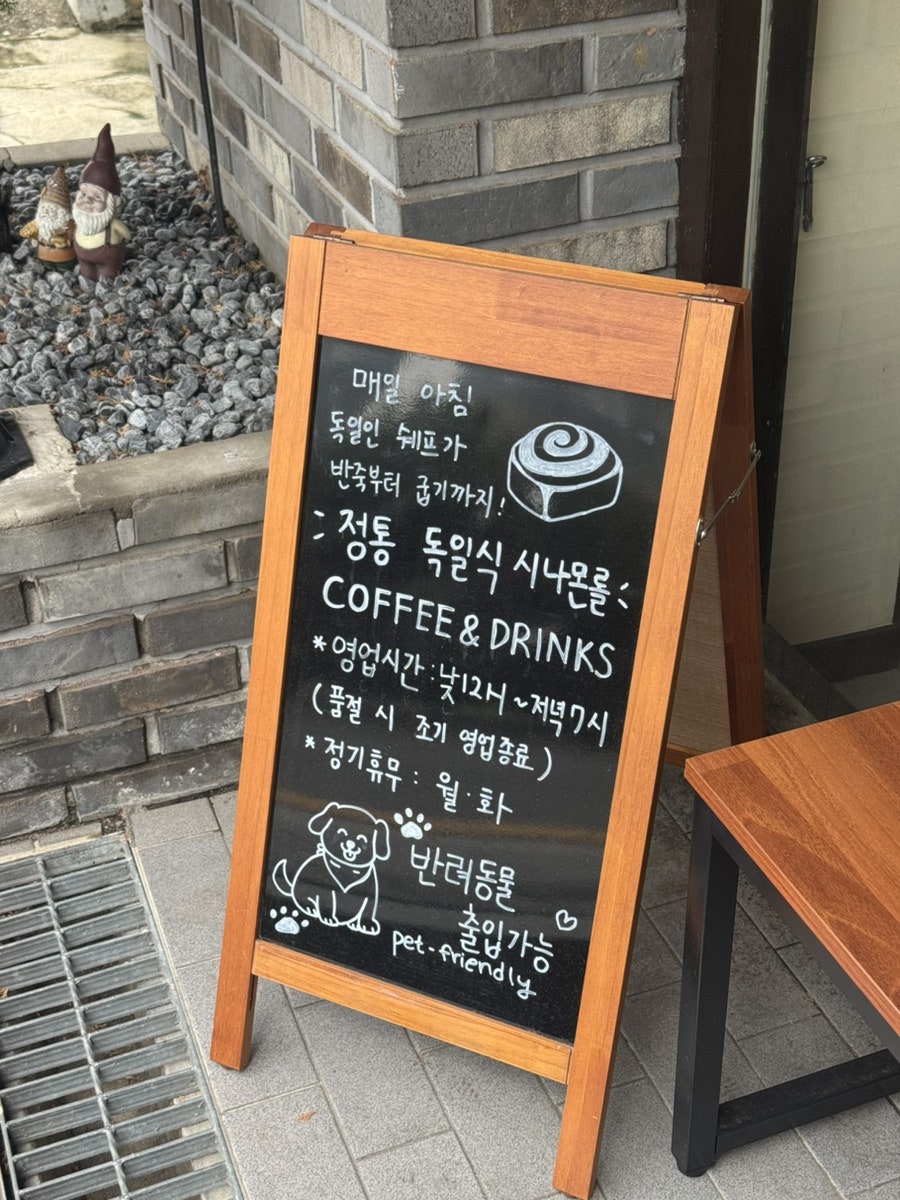 매일 아침
독일인 쉐프가
반죽부터 굽기까지!
정통 독일식 시나몬롤
COFFEE & DRINKS
*영업시간:낮12시~저녁7시
(품절 시 조기 영업종료)
*정기휴무: 월·화
반려동물
출입가능
pet-friendly